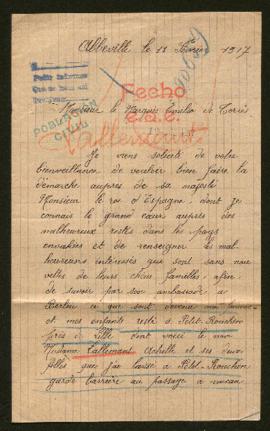 Abbeville, le 13 Février 1917
Monsieur le Marquis Emilio de Torrès
Fecho
POBLACIÓN
CIVIL
Je viens solicité de votre
bienveillance, de vouloir bien faire la
démarche auprès de sa majesté
Monsieur le roi d'Espagne, dont je
connais le grand cœur auprès des
malheureux restés dans les pays
envahies et de renseigner les mal-
heureux intéressés que sont sans nou-
velles de leurs chère famille, afin
de savoir par son ambassade à
Berlin ce que sont devenu ma femme
et mes enfants resté à Petit-Ronchin
près de Lille dont voici le nom
Madame Lallemant Achille et ses deux
filles que j'ai laissé à Petit-Ronchin
garde barrière au passage à niveau